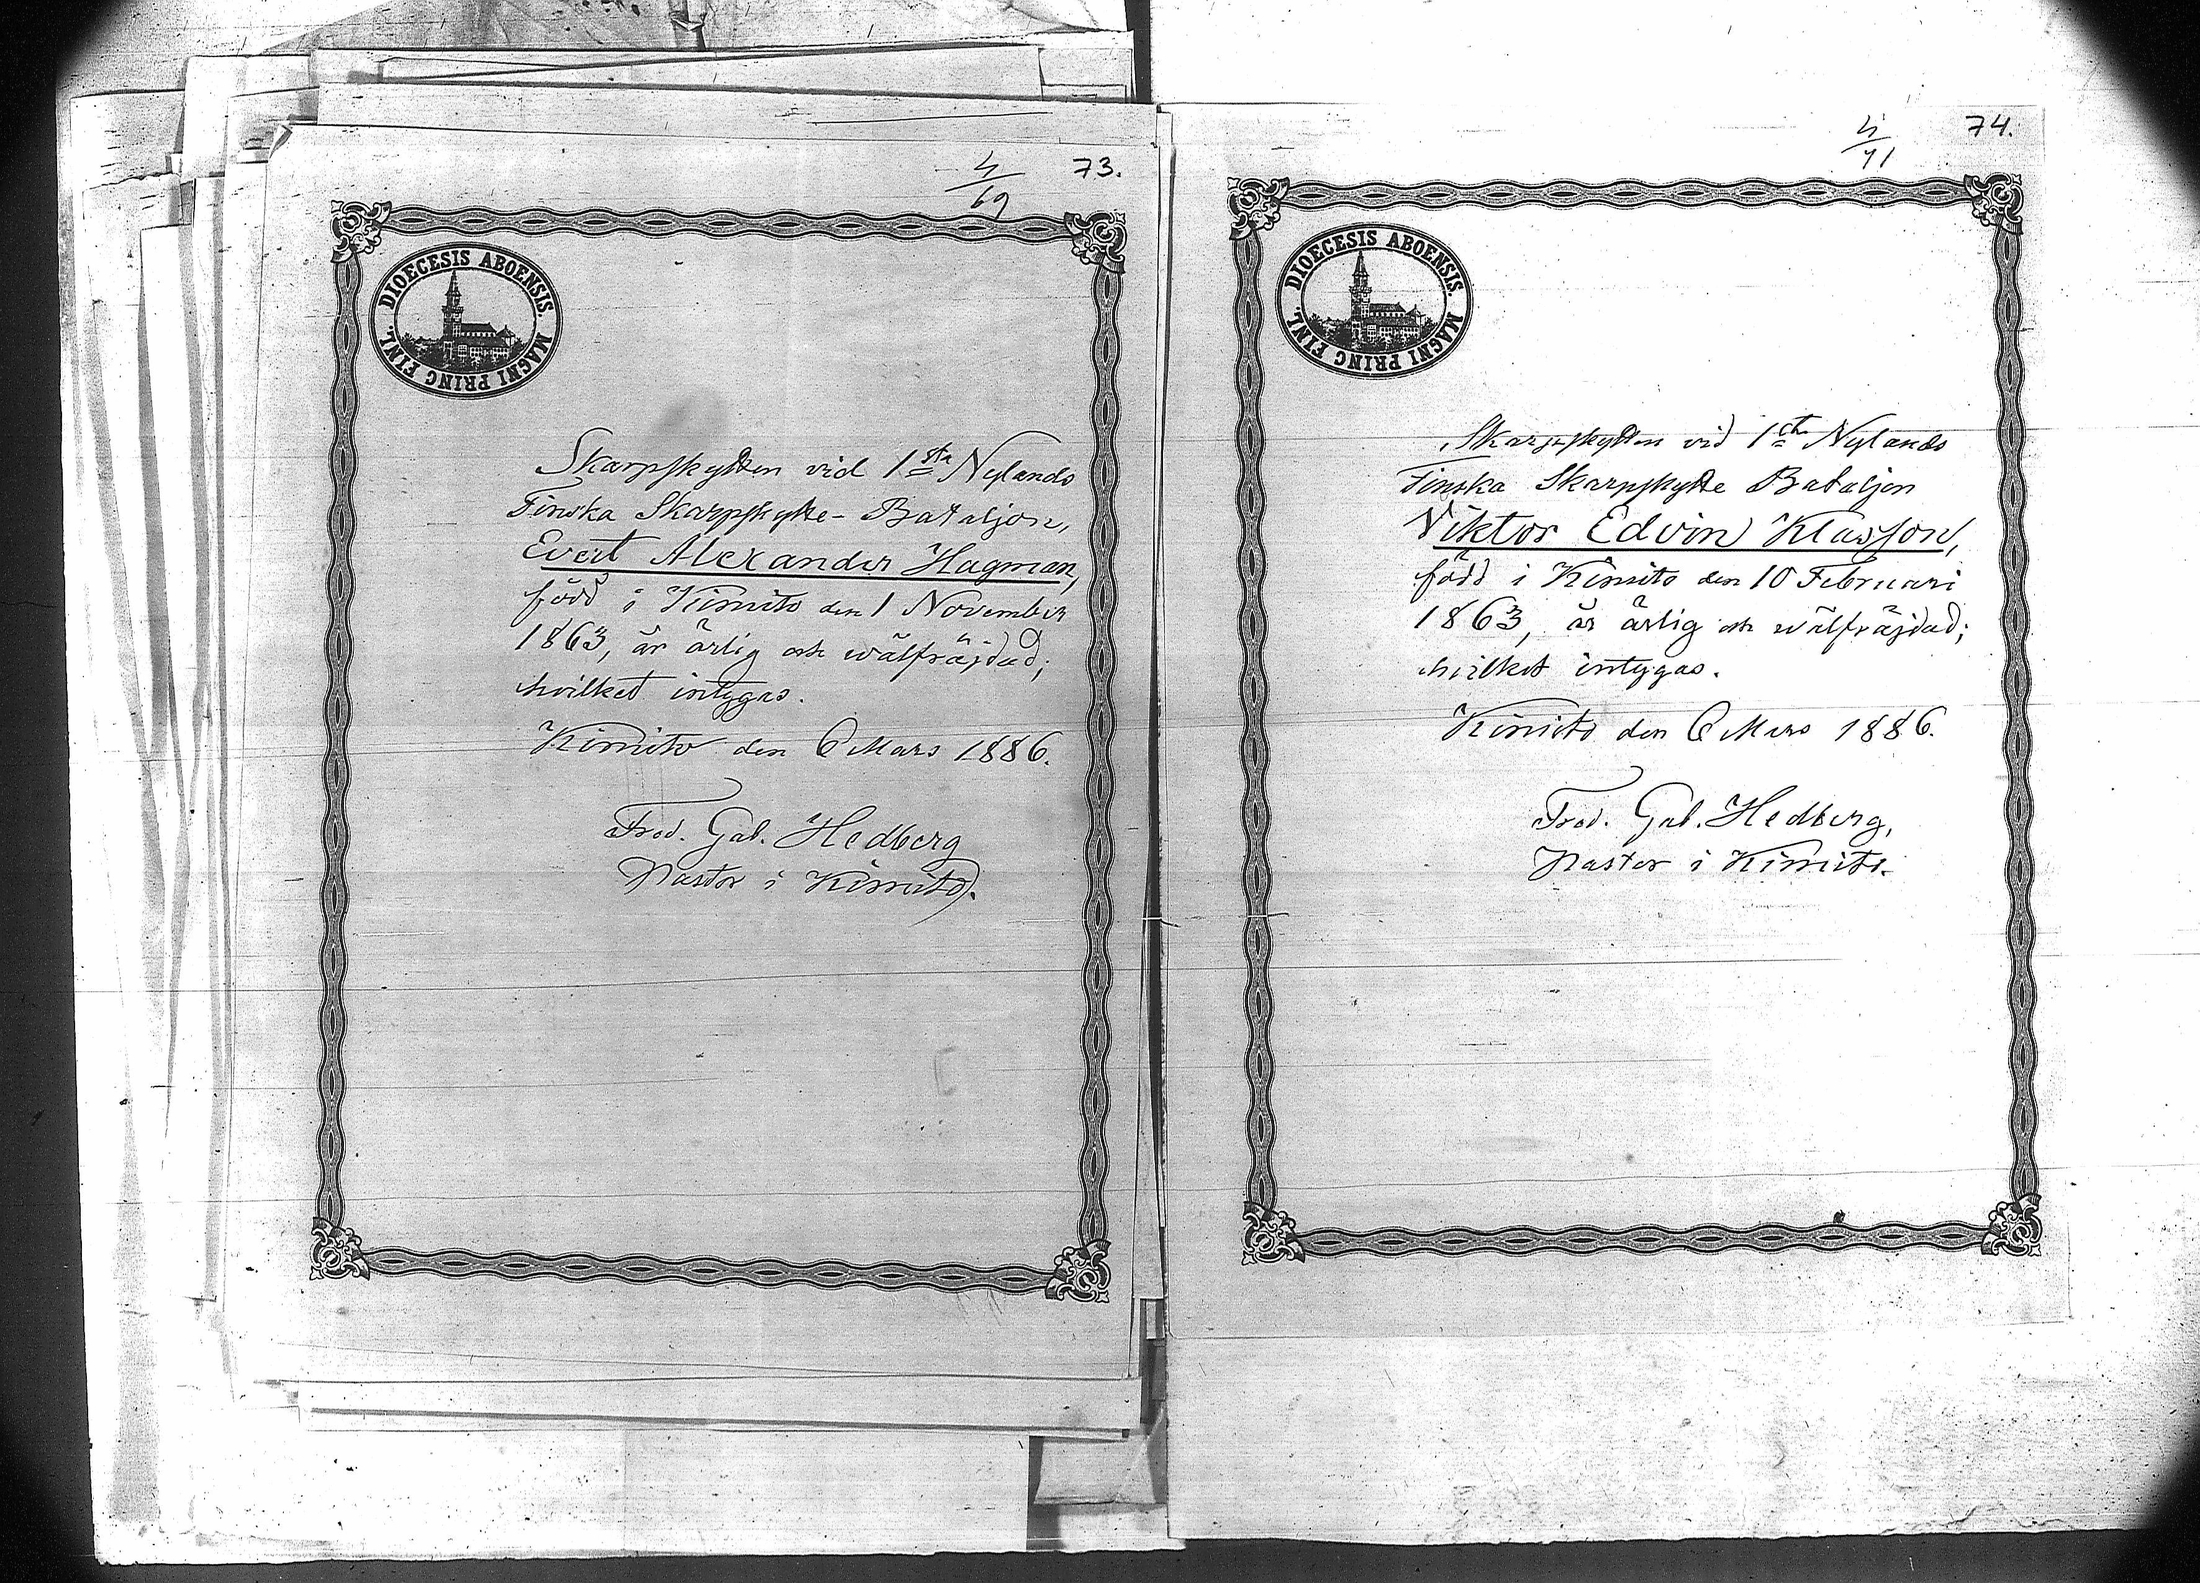 4/69 73.
DIOECESIS ABOENSIS. MAGNI PRINC FINL.
Skarpskytten vid 1sta Nylands
Finska Skarpskytte-Bataljon,
Evert Alexander Hagman,
född i Kimito den 1 November
1863, är ärlig och wälfräjdad;
hvilket intygas.
Kimito den 6 Mars 1886.
Fred. Gab. Hedberg
Pastor i Kimito.
4/71 74.
DIOECESIS ABOENSIS. MAGNI PRINC FINL.
Skarpskytten vid 1sta Nylands
Finska Skarpskytte Bataljon
Viktor Edvin Klasson,
född i Kimito den 10 Februari
1863, är ärlig och wälfräjdad;
hvilket intygas.
Kimito den 6 Mars 1886.
Fred. Gab. Hedberg,
Pastor i Kimito.